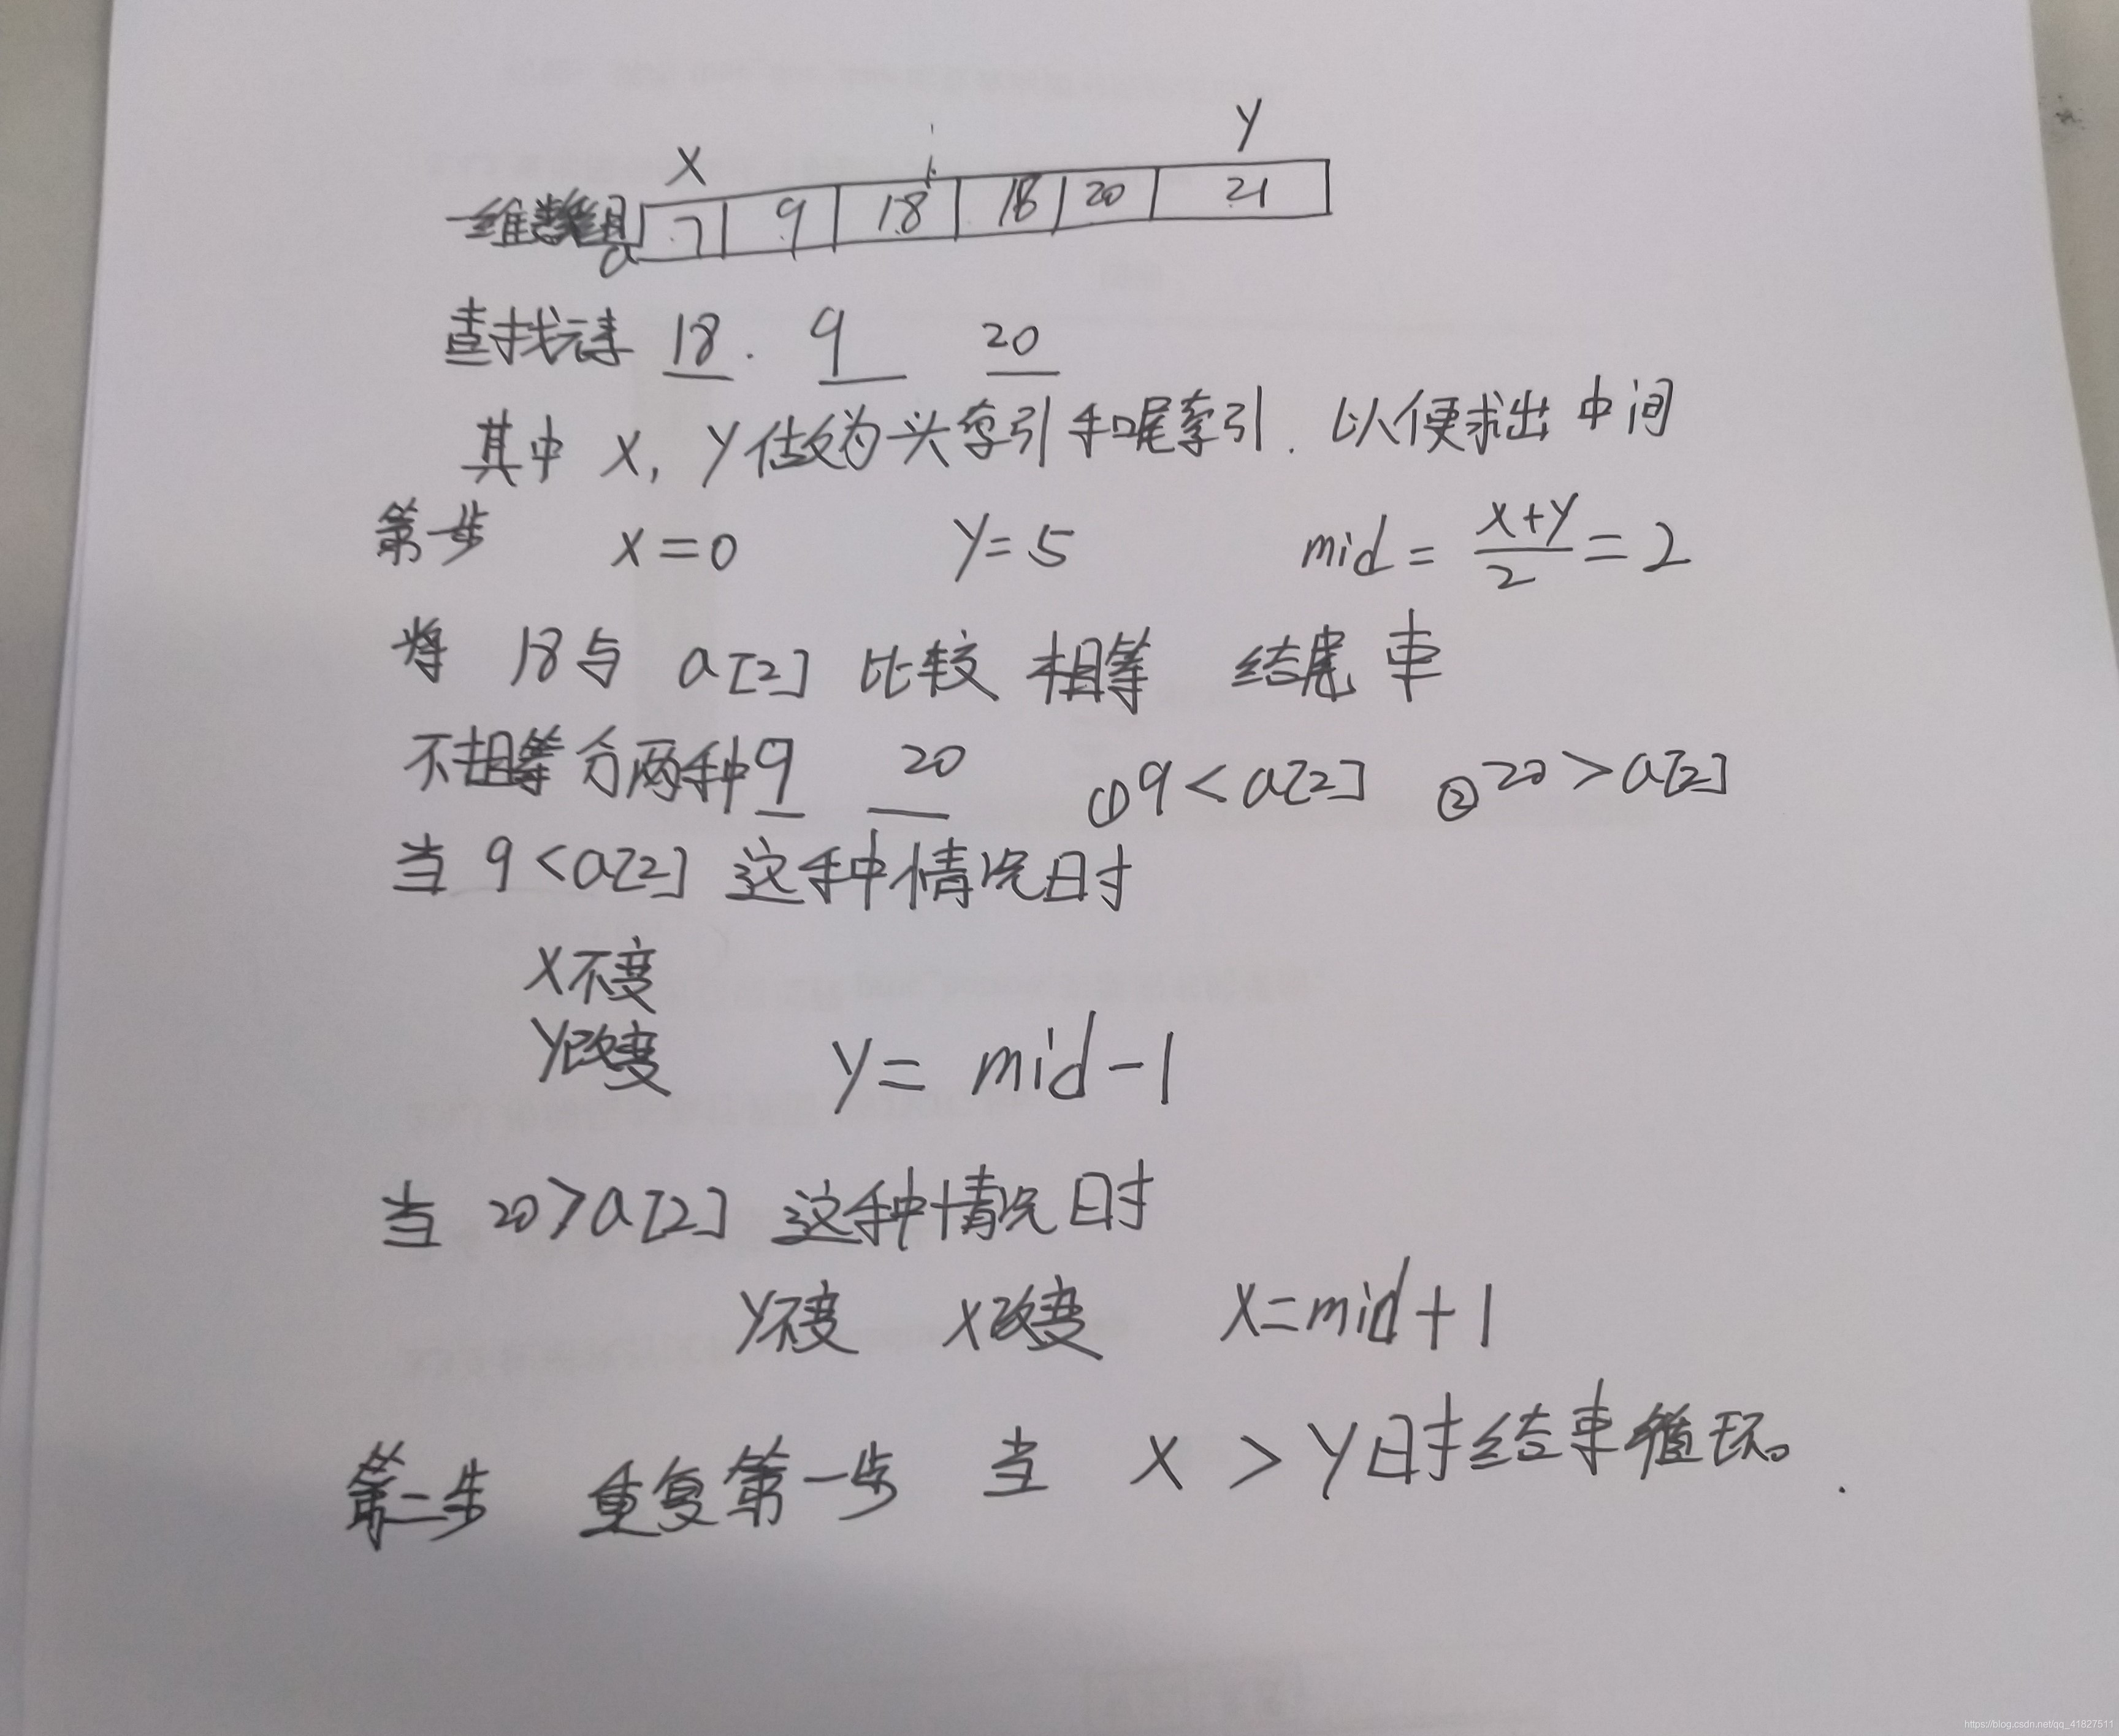 X Y
一维数组a 7 9 18 18 20 21
查找元素 18. 9 20
其中 X, Y 做为头索引和尾索引. 以便求出 中间
第一步 X=0 Y=5 mid = \frac{X+Y}{2} = 2
将 18与 a[2] 比较 相等 结 束
不相等 分两种 9 20 ①9<a[2] ②20>a[2]
当 9<a[2] 这种情况时
X不变
Y改变 Y= mid-1
当 20>a[2] 这种情况时
Y不变 X改变 X=mid+1
第二步 重复第一步 当 X > Y时结束循环。
https://blog.csdn.net/qq_41827511